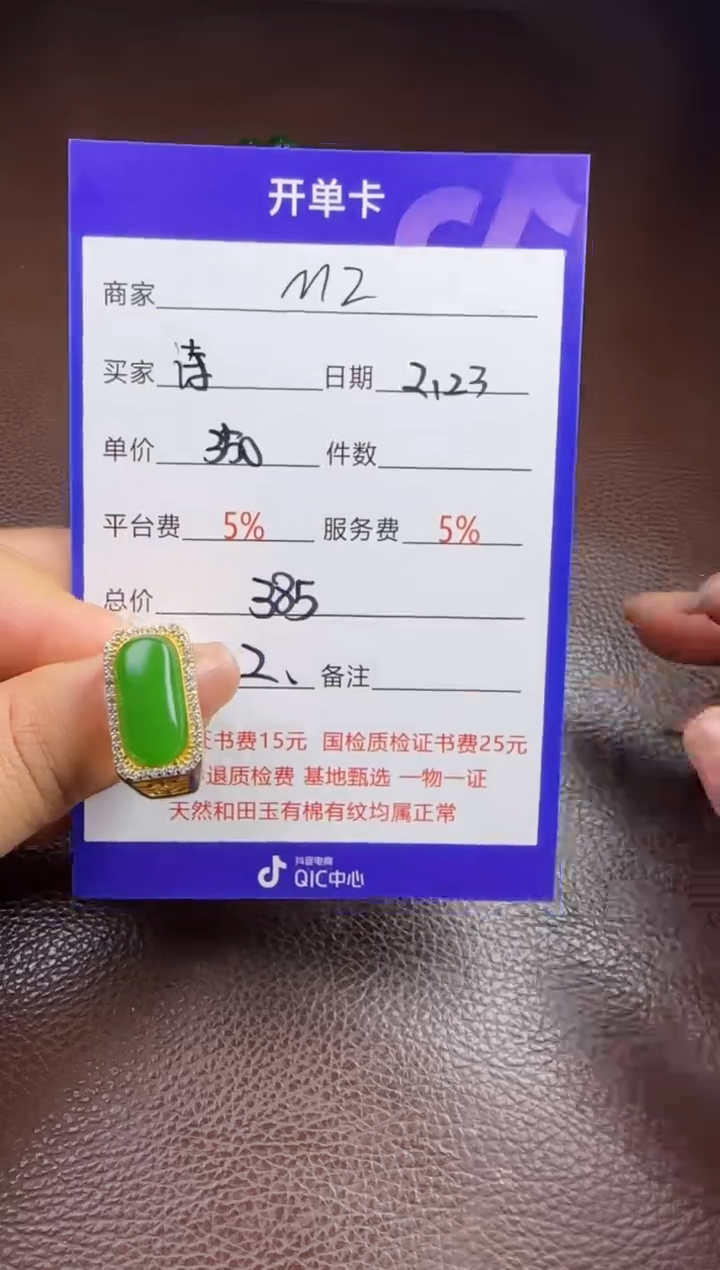 开单卡
商家 MZ
买家 诗 日期 2,23
单价 350 件数
平台费 5% 服务费 5%
总价 385
2、 备注
书费15元 国检质检证书费25元
退质检费 基地甄选 一物一证
天然和田玉有棉有纹均属正常
抖音电商
QIC中心